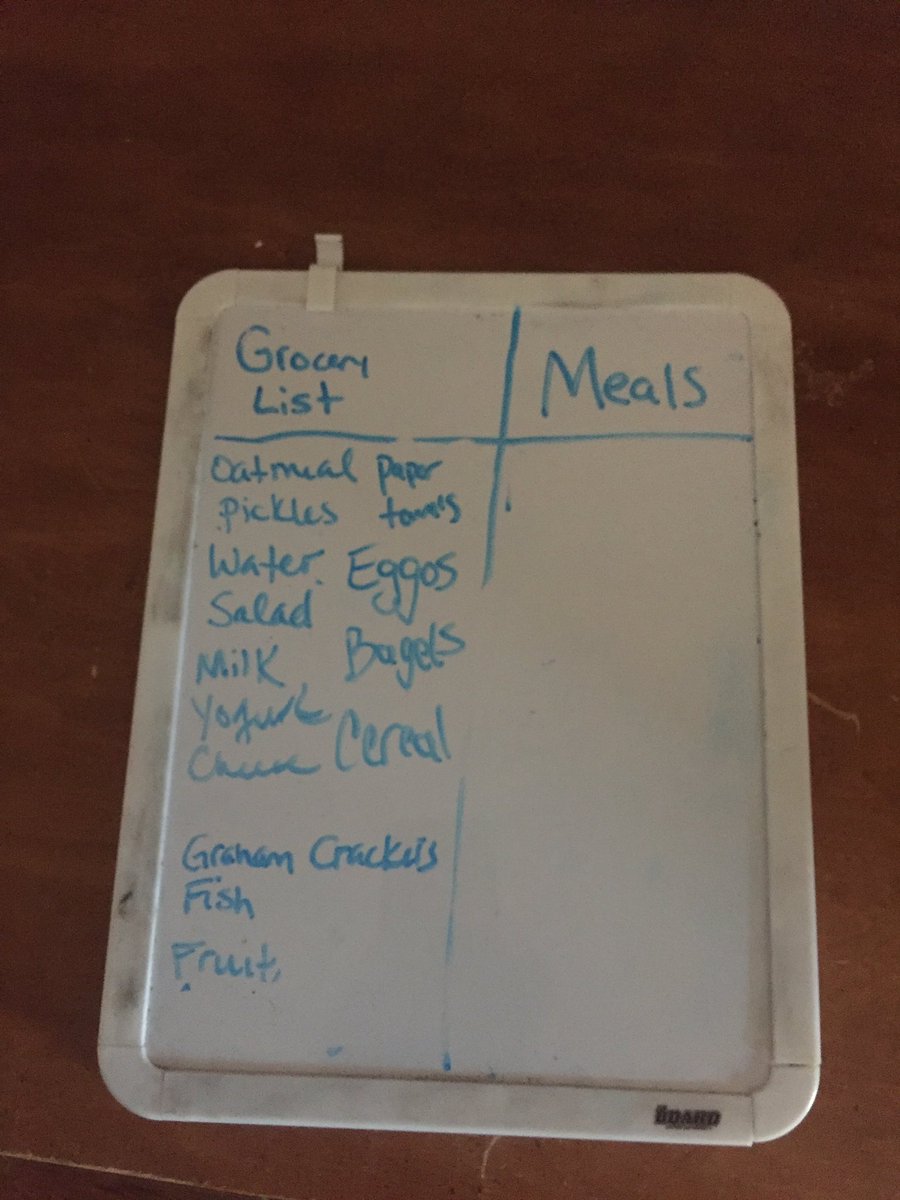 Grocery
List
Meals
Oatmeal
Pickles
Water
Salad
Milk
Yogurt
Cheese
paper
towels
Eggos
Bagels
Cereal
Graham Crackers
Fish
Fruit
BOARD